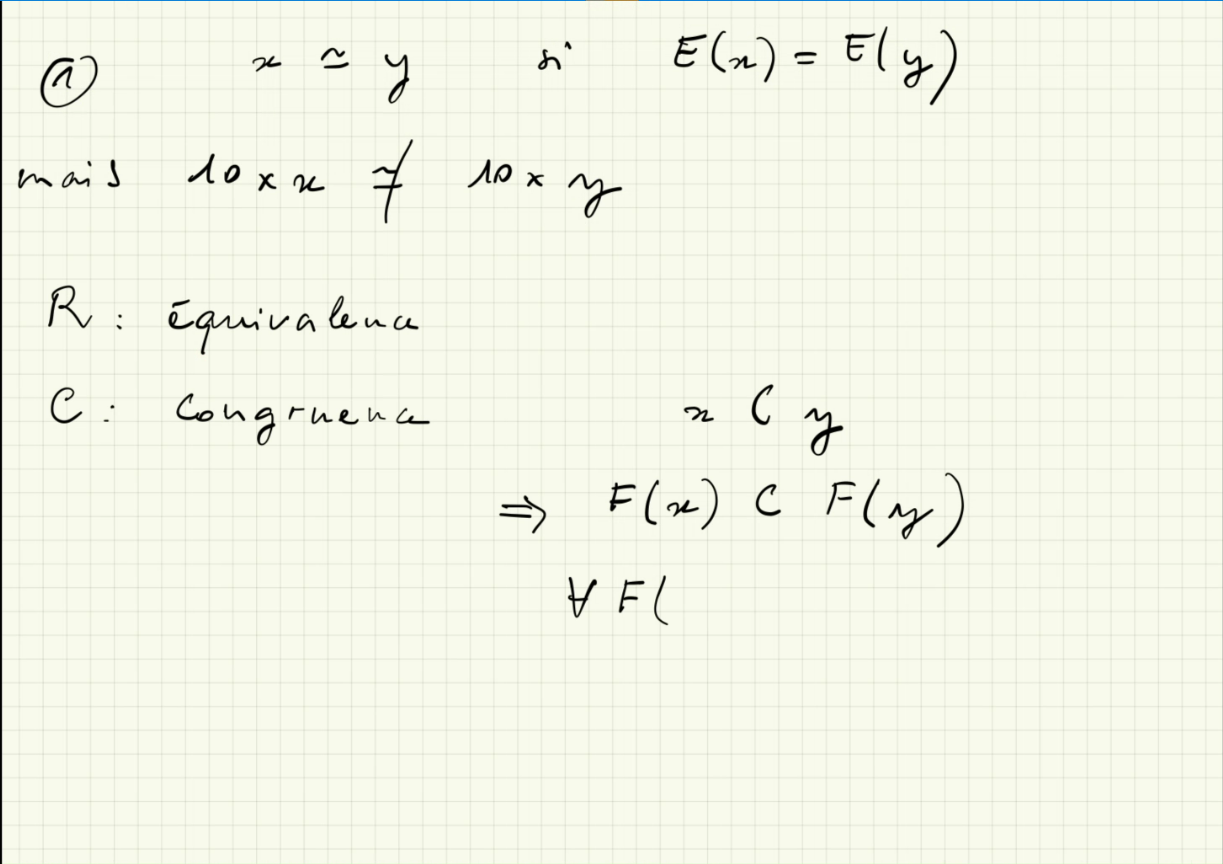 ① x ≃ y si E(x) = E(y)
mais 10 × x ≄ 10 × y
R : équivalence
C : congruence x C y
⇒ F(x) C F(y)
∀ F(